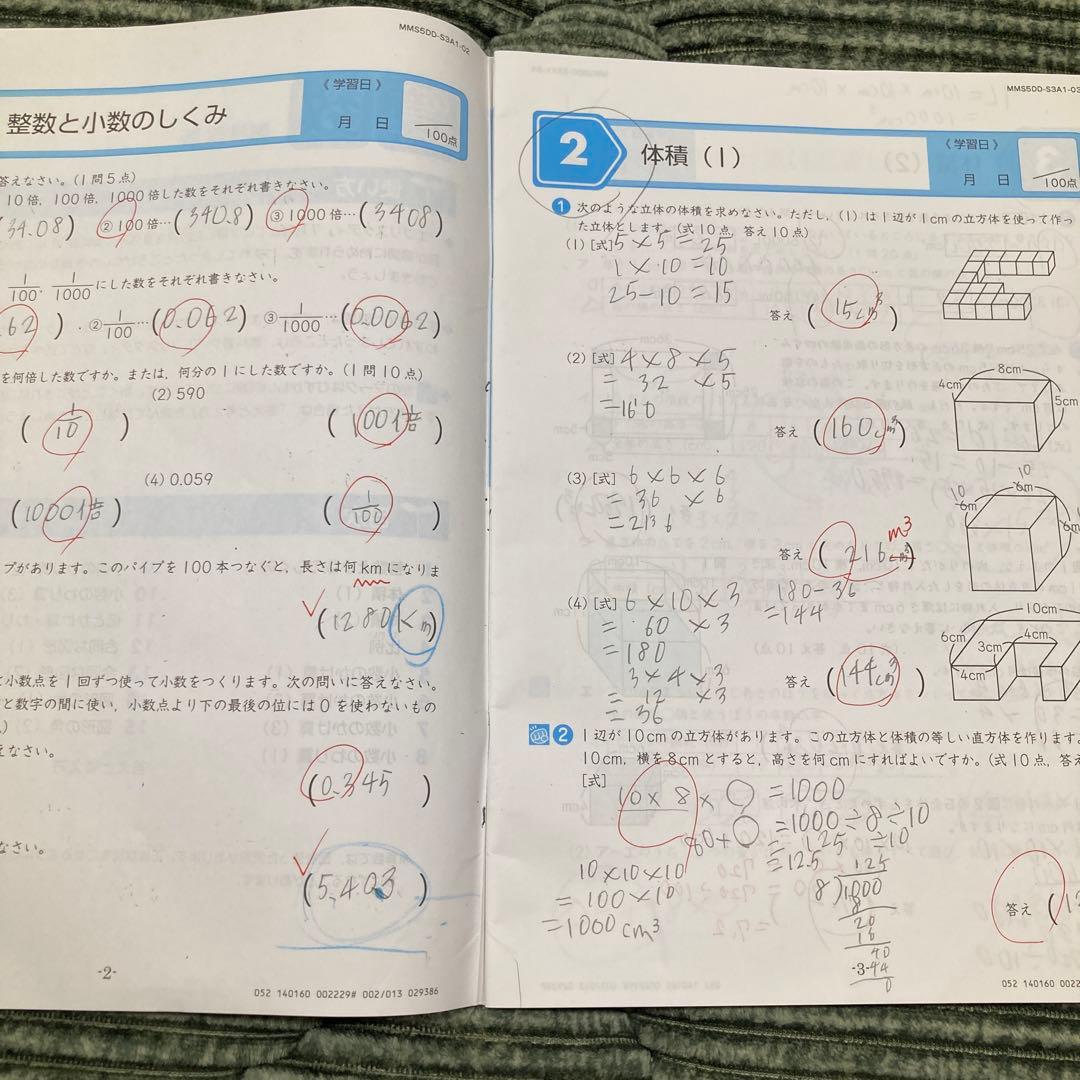 MMS5DD-S3A1-02
整数と小数のしくみ
《学習日》
月 日
/100点
答えなさい。(1問5点)
10倍, 100倍, 1000倍した数をそれぞれ書きなさい。
34.08) ②100倍…(340.8) ③1000倍…(3408)
1/100, 1/1000にした数をそれぞれ書きなさい。
.62) ②1/100…(0.062) ③1/1000…(0.0062)
を何倍した数ですか。または, 何分の1にした数ですか。(1問10点)
(2) 590
(1/10) (100倍)
(4) 0.059
(1000倍) (1/100)
プがあります。このパイプを100本つなぐと, 長さは何kmになりま
(1280km)
と小数点を1回ずつ使って小数をつくります。次の問いに答えなさい。
と数字の間に使い, 小数点より下の最後の位には0を使わないもの
えなさい。
(0.345)
なさい。
(5.403)
-2-
052 140160 002229# 002/013 029386
MMS5DD-S3A1-03
2 体積(1)
《学習日》
月 日
/100点
1 次のような立体の体積を求めなさい。ただし, (1)は1辺が1cmの立方体を使って作っ
た立体とします。(式10点, 答え10点)
(1) [式] 5×5=25
1×10=10
25-10=15
答え (15cm³)
(2) [式] 4×8×5
= 32 ×5
=160
答え (160cm³)
8cm
4cm
5cm
(3) [式] 6×6×6
= 36 ×6
=216
答え (216cm³) m³
10
6m
10
6m
(4) [式] 6×10×3
= 60 ×3
=180
3×4×3
= 12 ×3
= 36
180-36
=144
答え (144cm³)
10cm
6cm
3cm
4cm
4cm
2 1辺が10cmの立方体があります。この立方体と体積の等しい直方体を作ります。
10cm, 横を8cmとすると, 高さを何cmにすればよいですか。(式10点, 答え
[式]
10×8×○=1000
80×○=1000÷8÷10
=125÷10
=12.5
10×10×10
=100×10
=1000cm³
125
8)1000
8
20
16
40
40
0
答え (1
-3-
052 140160 002